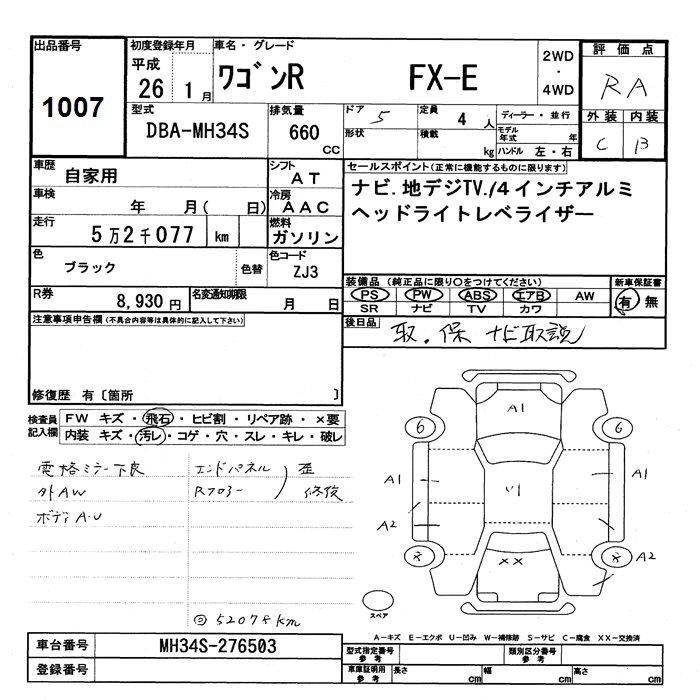 出品番号
1007
初度登録年月
平成
26 1月
車名・グレード
ワゴンR FX-E
2WD
・
4WD
評価点
RA
外装 内装
C B
型式
DBA-MH34S
排気量
660
CC
ドア 5
形状
定員 4 人
積載 kg
ディーラー・並行
モデル年式 年
ハンドル 左・右
車歴
自家用
シフト
AT
車検
年 月( 日)
冷房
AAC
走行
5万2千077 km
燃料
ガソリン
色
ブラック
色替
色コード
ZJ3
R券
8,930円
名変通知期限
月 日
セールスポイント(正常に機能するものに限ります)
ナビ.地デジTV./4インチアルミ
ヘッドライトレベライザー
装備品(純正品に限り○をつけてください)
新車保証書
PS PW ABS エアB AW
SR ナビ TV カワ
有 無
後日品
取.保 ナビ取説
注意事項申告欄(不具合内容等は具体的に記入して下さい)
修復歴 有〔箇所 〕
検査員
記入欄
FW キズ・飛石・ヒビ割・リペア跡・×要
内装 キズ・汚レ・コゲ・穴・スレ・キレ・破レ
電格ミラー不良
外AW
ボディA.U
エンドパネル
Rフロアー
歪
修復
52078km
A1
6
6
A1
A1
A2
A2
××
スペア
A-キズ E-エクボ U-凹み W-補修跡 S-サビ C-腐食 XX-交換済
車台番号
MH34S-276503
登録番号
型式指定番号
参考
類別区分番号
参考
車庫証明用
参考
長さ cm
幅 cm
高さ cm